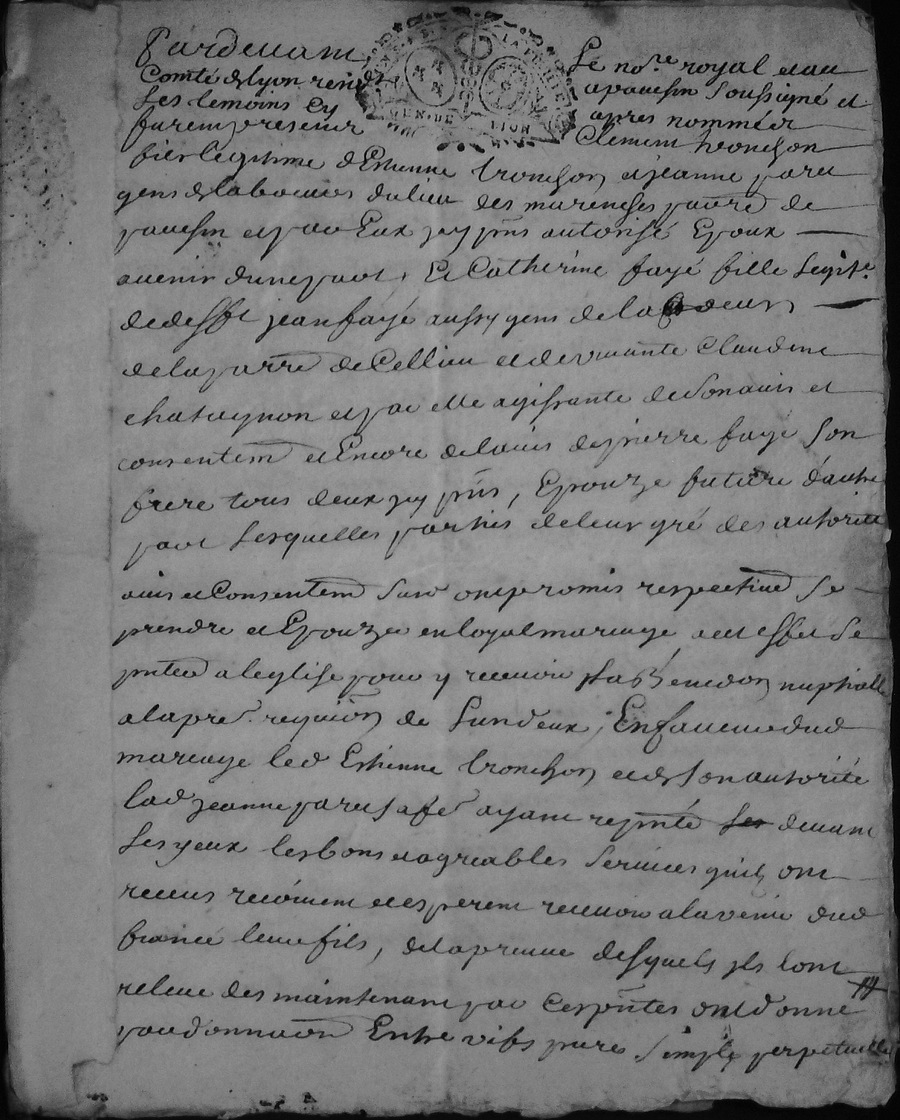 Pardevant Le nore royal et au
Comté de lyon resid apauesin soussigné et
Les temoins cy apres nommées
furent presents Clement tronchon
GEN.DE LION
fils legitime d'Estienne tronchon et jeanne
gens de labeurs du lieu des marenches parre de
pauesin et par Eux jcy pnts autorisé Epoux
auenir dune part, Et Catherine fayé fille legite
de defft jean fayé aussy gens de labeur
de la parre de Cellieu et de viuante Claudine
chatagnon et par elle agissante de son auis et
consentemt et Encore de lauis de pierre fayé son
frere tous deux jcy pnts, Epouze future d'autre
part Lesquelles parties de leur gré des autorité
auis et Consentemt susd ont promis respectiuemt se
prendre et Epouzer en loyal mariage a cet effet se
pnter a leglise pour y receuoir la Benedon nuptialle
a la pre requion de lun deux, En faueur dud
mariage led Estienne tronchon et de son autorité
lad jeanne sa fe ayant repnté devant
Les yeux les bons et agreables seruices quils ont
receus recoiuent et esperent receuoir alavenir dud
fiancé leur fils, de la preuue desquels jls lont
releué des maintenant par Ces pntes ont donné
par donnaon Entre vifs pure simple perpetuelle